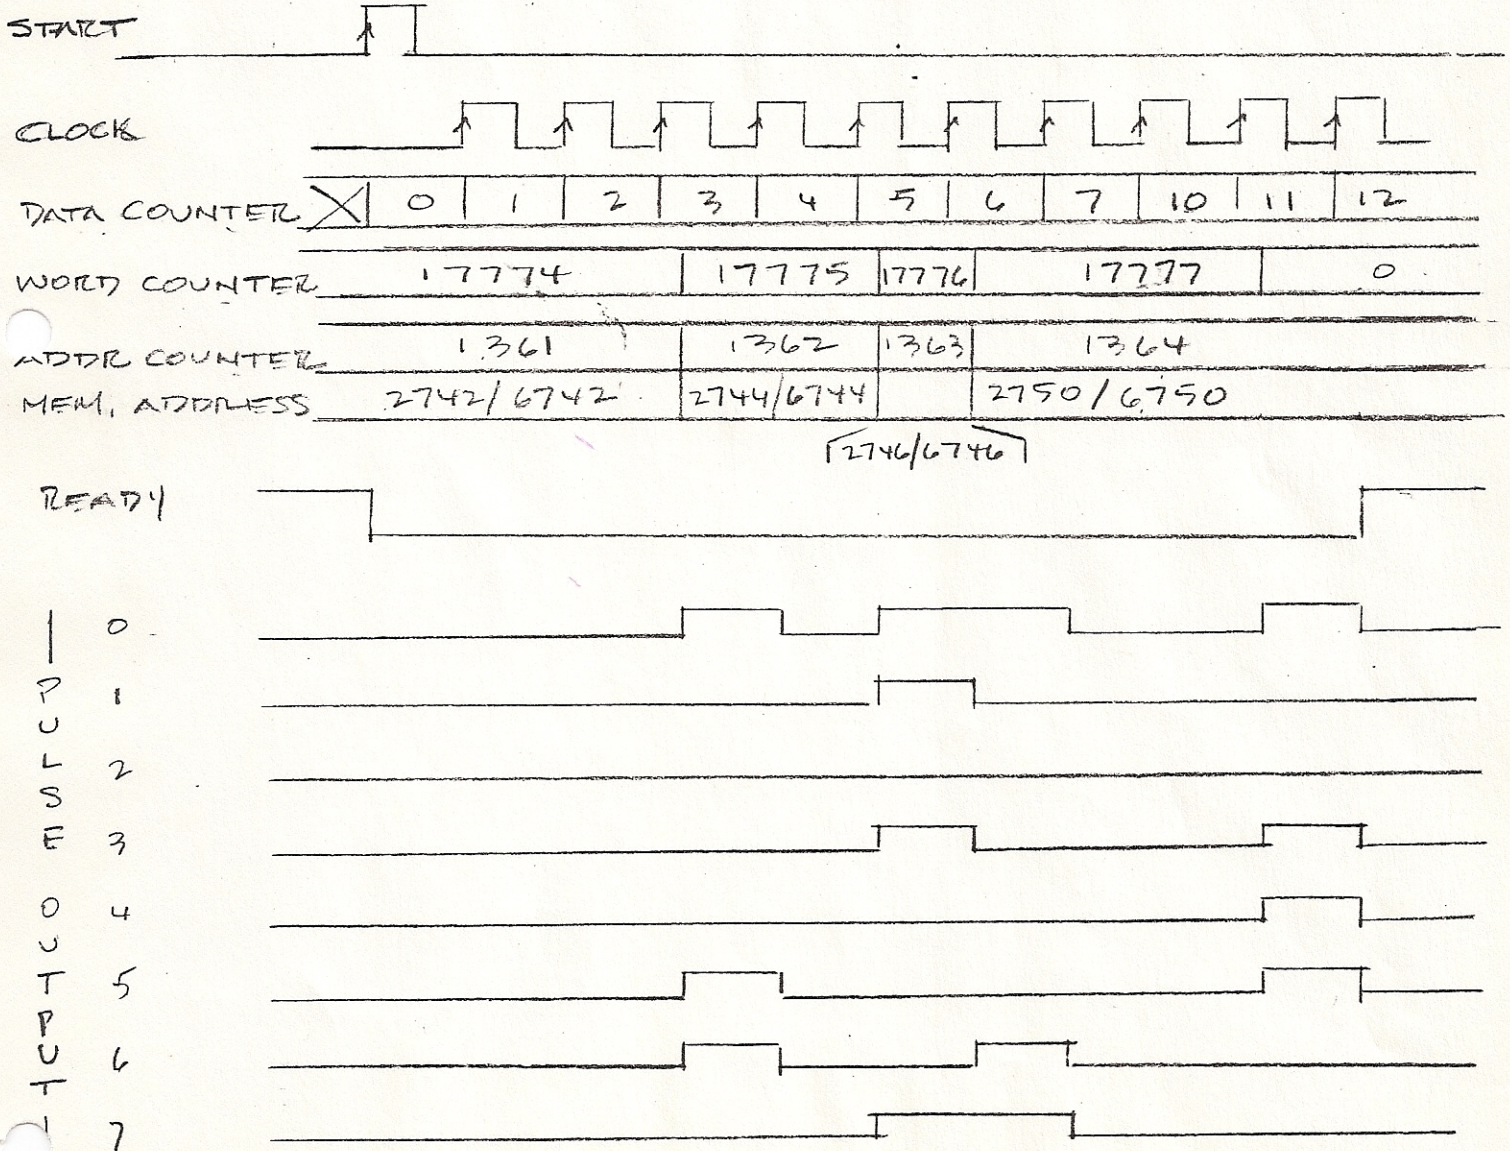 START
CLOCK
DATA COUNTER X 0 1 2 3 4 5 6 7 10 11 12
WORD COUNTER 17774 17775 17776 17777 0
ADDR COUNTER 1361 1362 1363 1364
MEM, ADDRESS 2742/6742 2744/6744 2750/6750
2746/6746
READY
PULSE OUTPUT
0
1
2
3
4
5
6
7